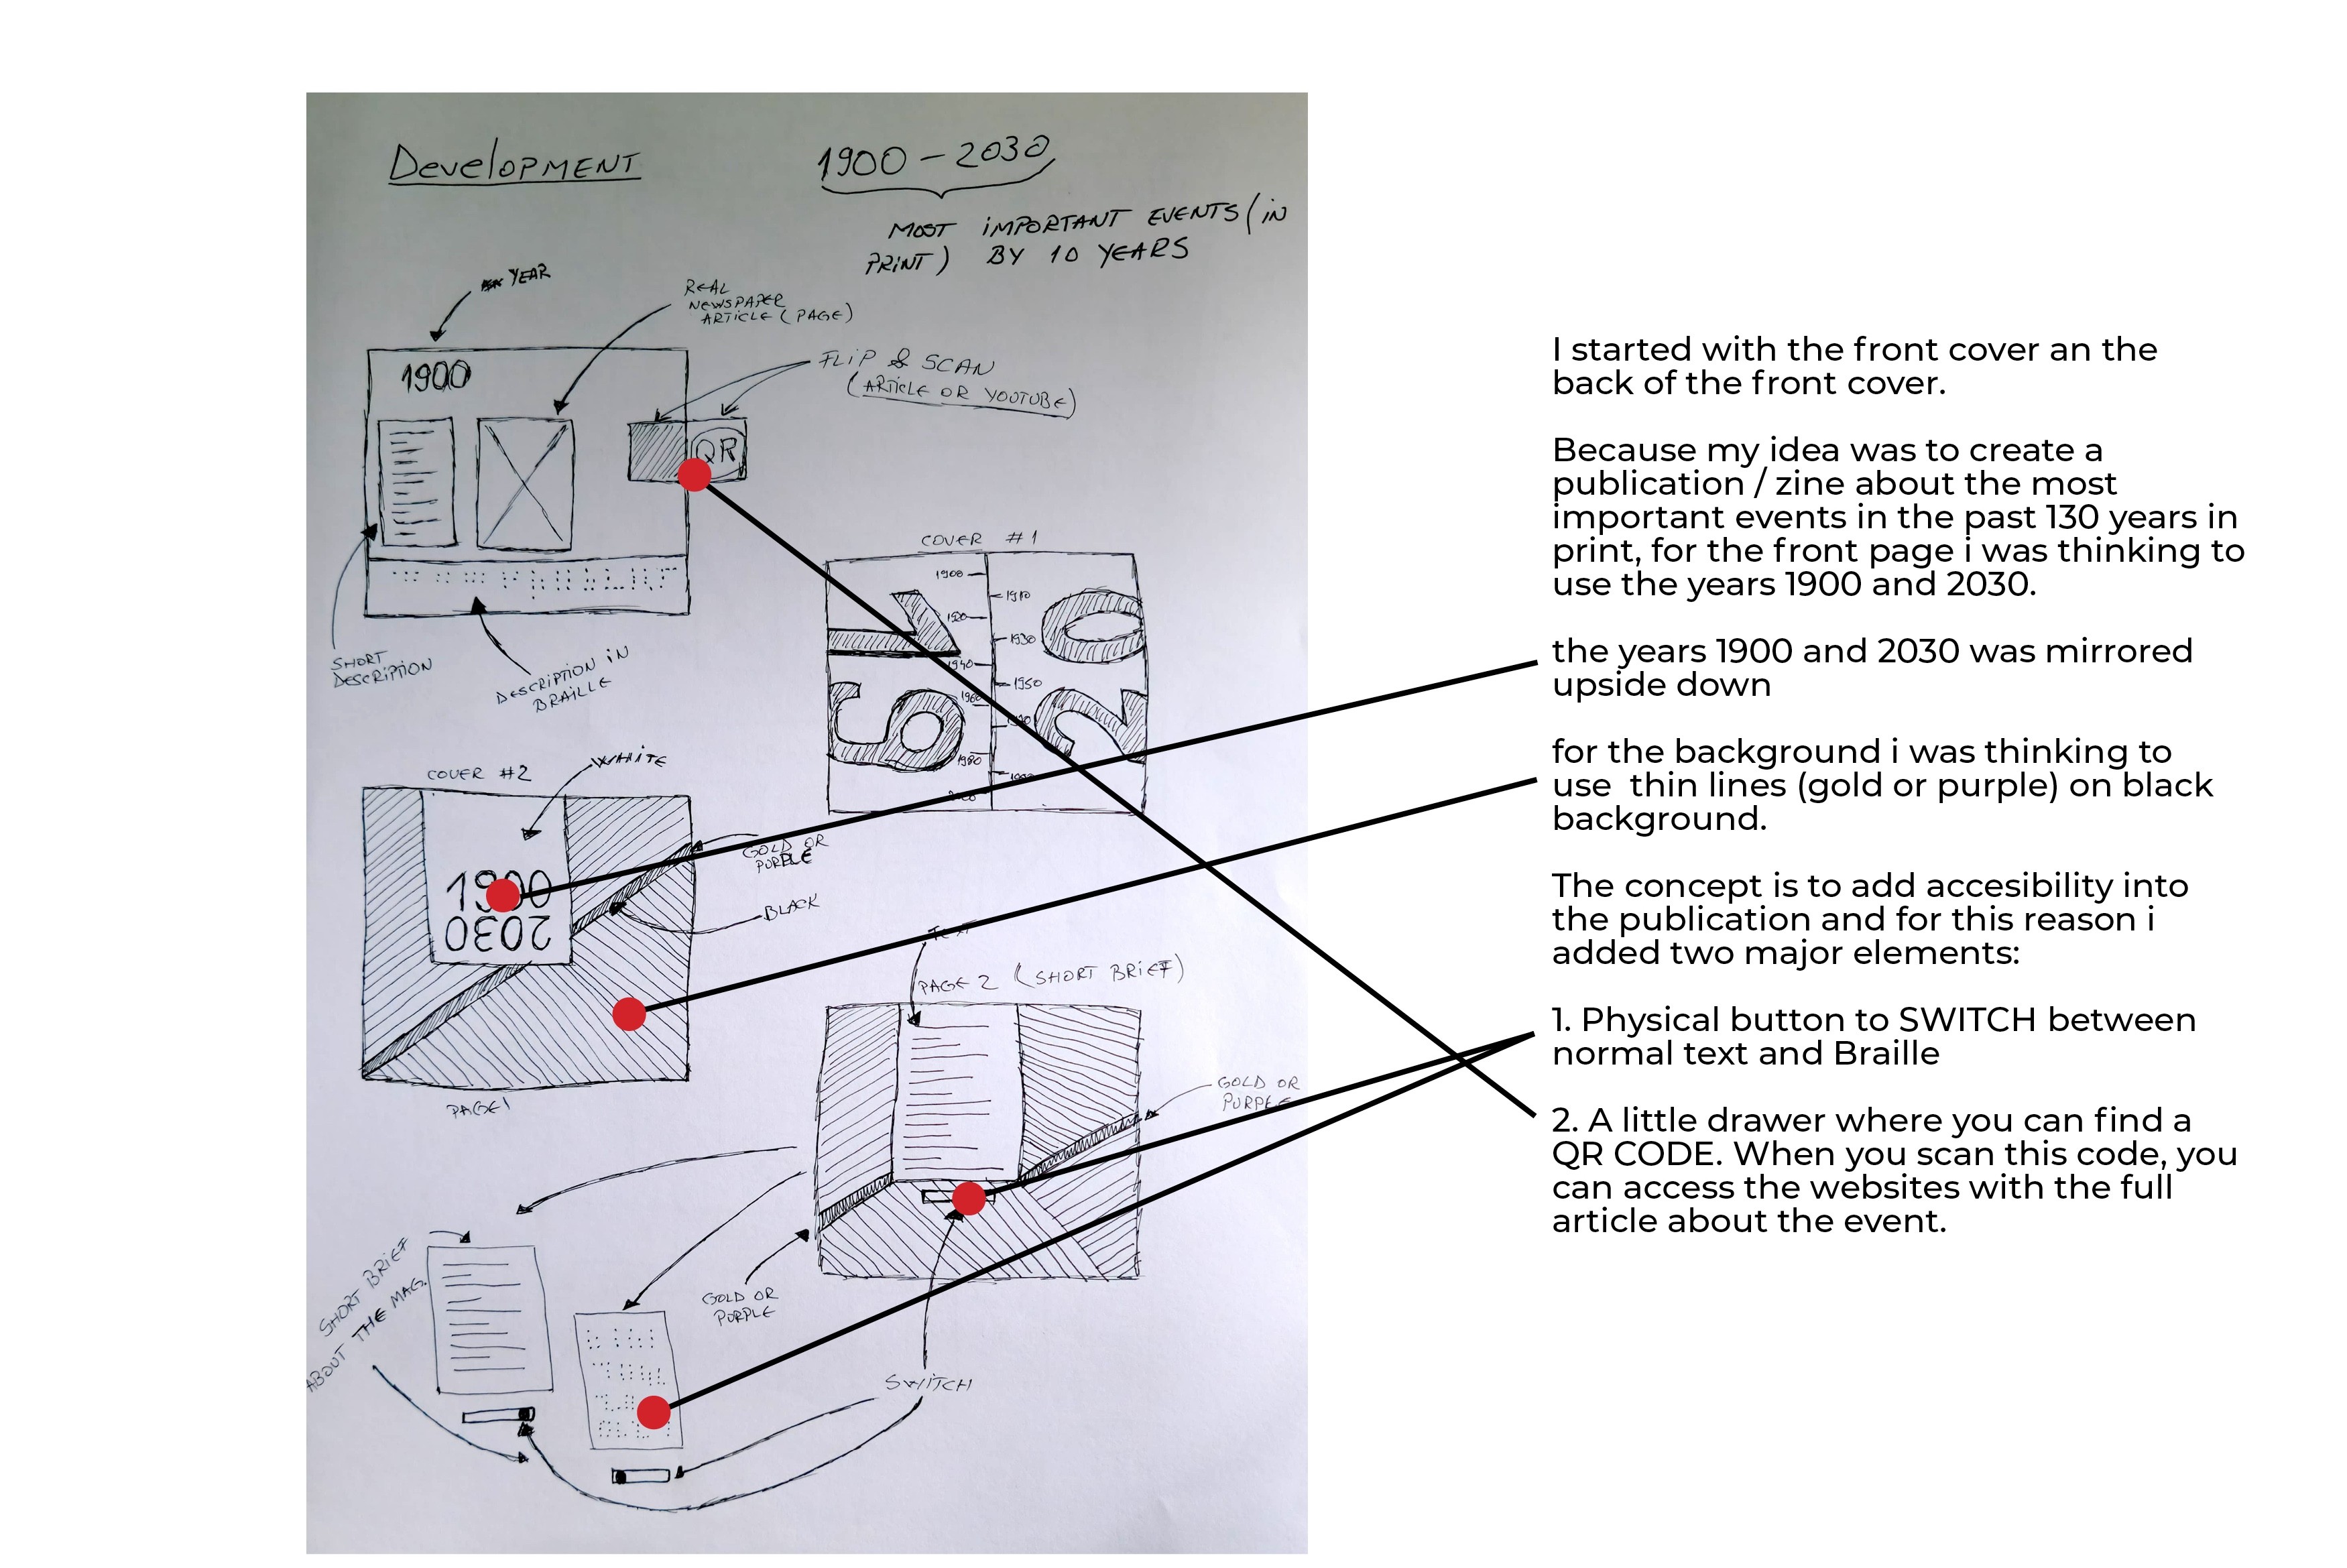 Development
1900 - 2030
MOST IMPORTANT EVENTS (IN
PRINT) BY 10 YEARS
YEAR
REAL
NEWSPAPER
ARTICLE (PAGE)
FLIP & SCAN
(ARTICLE OR YOUTUBE)
1900
QR
SHORT
DESCRIPTION
DESCRIPTION IN
BRAILLE
COVER #1
1900
1910
1920
1930
1940
1950
1960
1970
1980
1990
2000
19
20
COVER #2
WHITE
1900
2030
GOLD OR
PURPLE
BLACK
PAGE 1
TEXT
PAGE 2 (SHORT BRIEF)
GOLD OR
PURPLE
GOLD OR
PURPLE
SHORT BRIEF
ABOUT THE MAG.
SWITCH
I started with the front cover an the
back of the front cover.
Because my idea was to create a
publication / zine about the most
important events in the past 130 years in
print, for the front page i was thinking to
use the years 1900 and 2030.
the years 1900 and 2030 was mirrored
upside down
for the background i was thinking to
use  thin lines (gold or purple) on black
background.
The concept is to add accesibility into
the publication and for this reason i
added two major elements:
1. Physical button to SWITCH between
normal text and Braille
2. A little drawer where you can find a
QR CODE. When you scan this code, you
can access the websites with the full
article about the event.